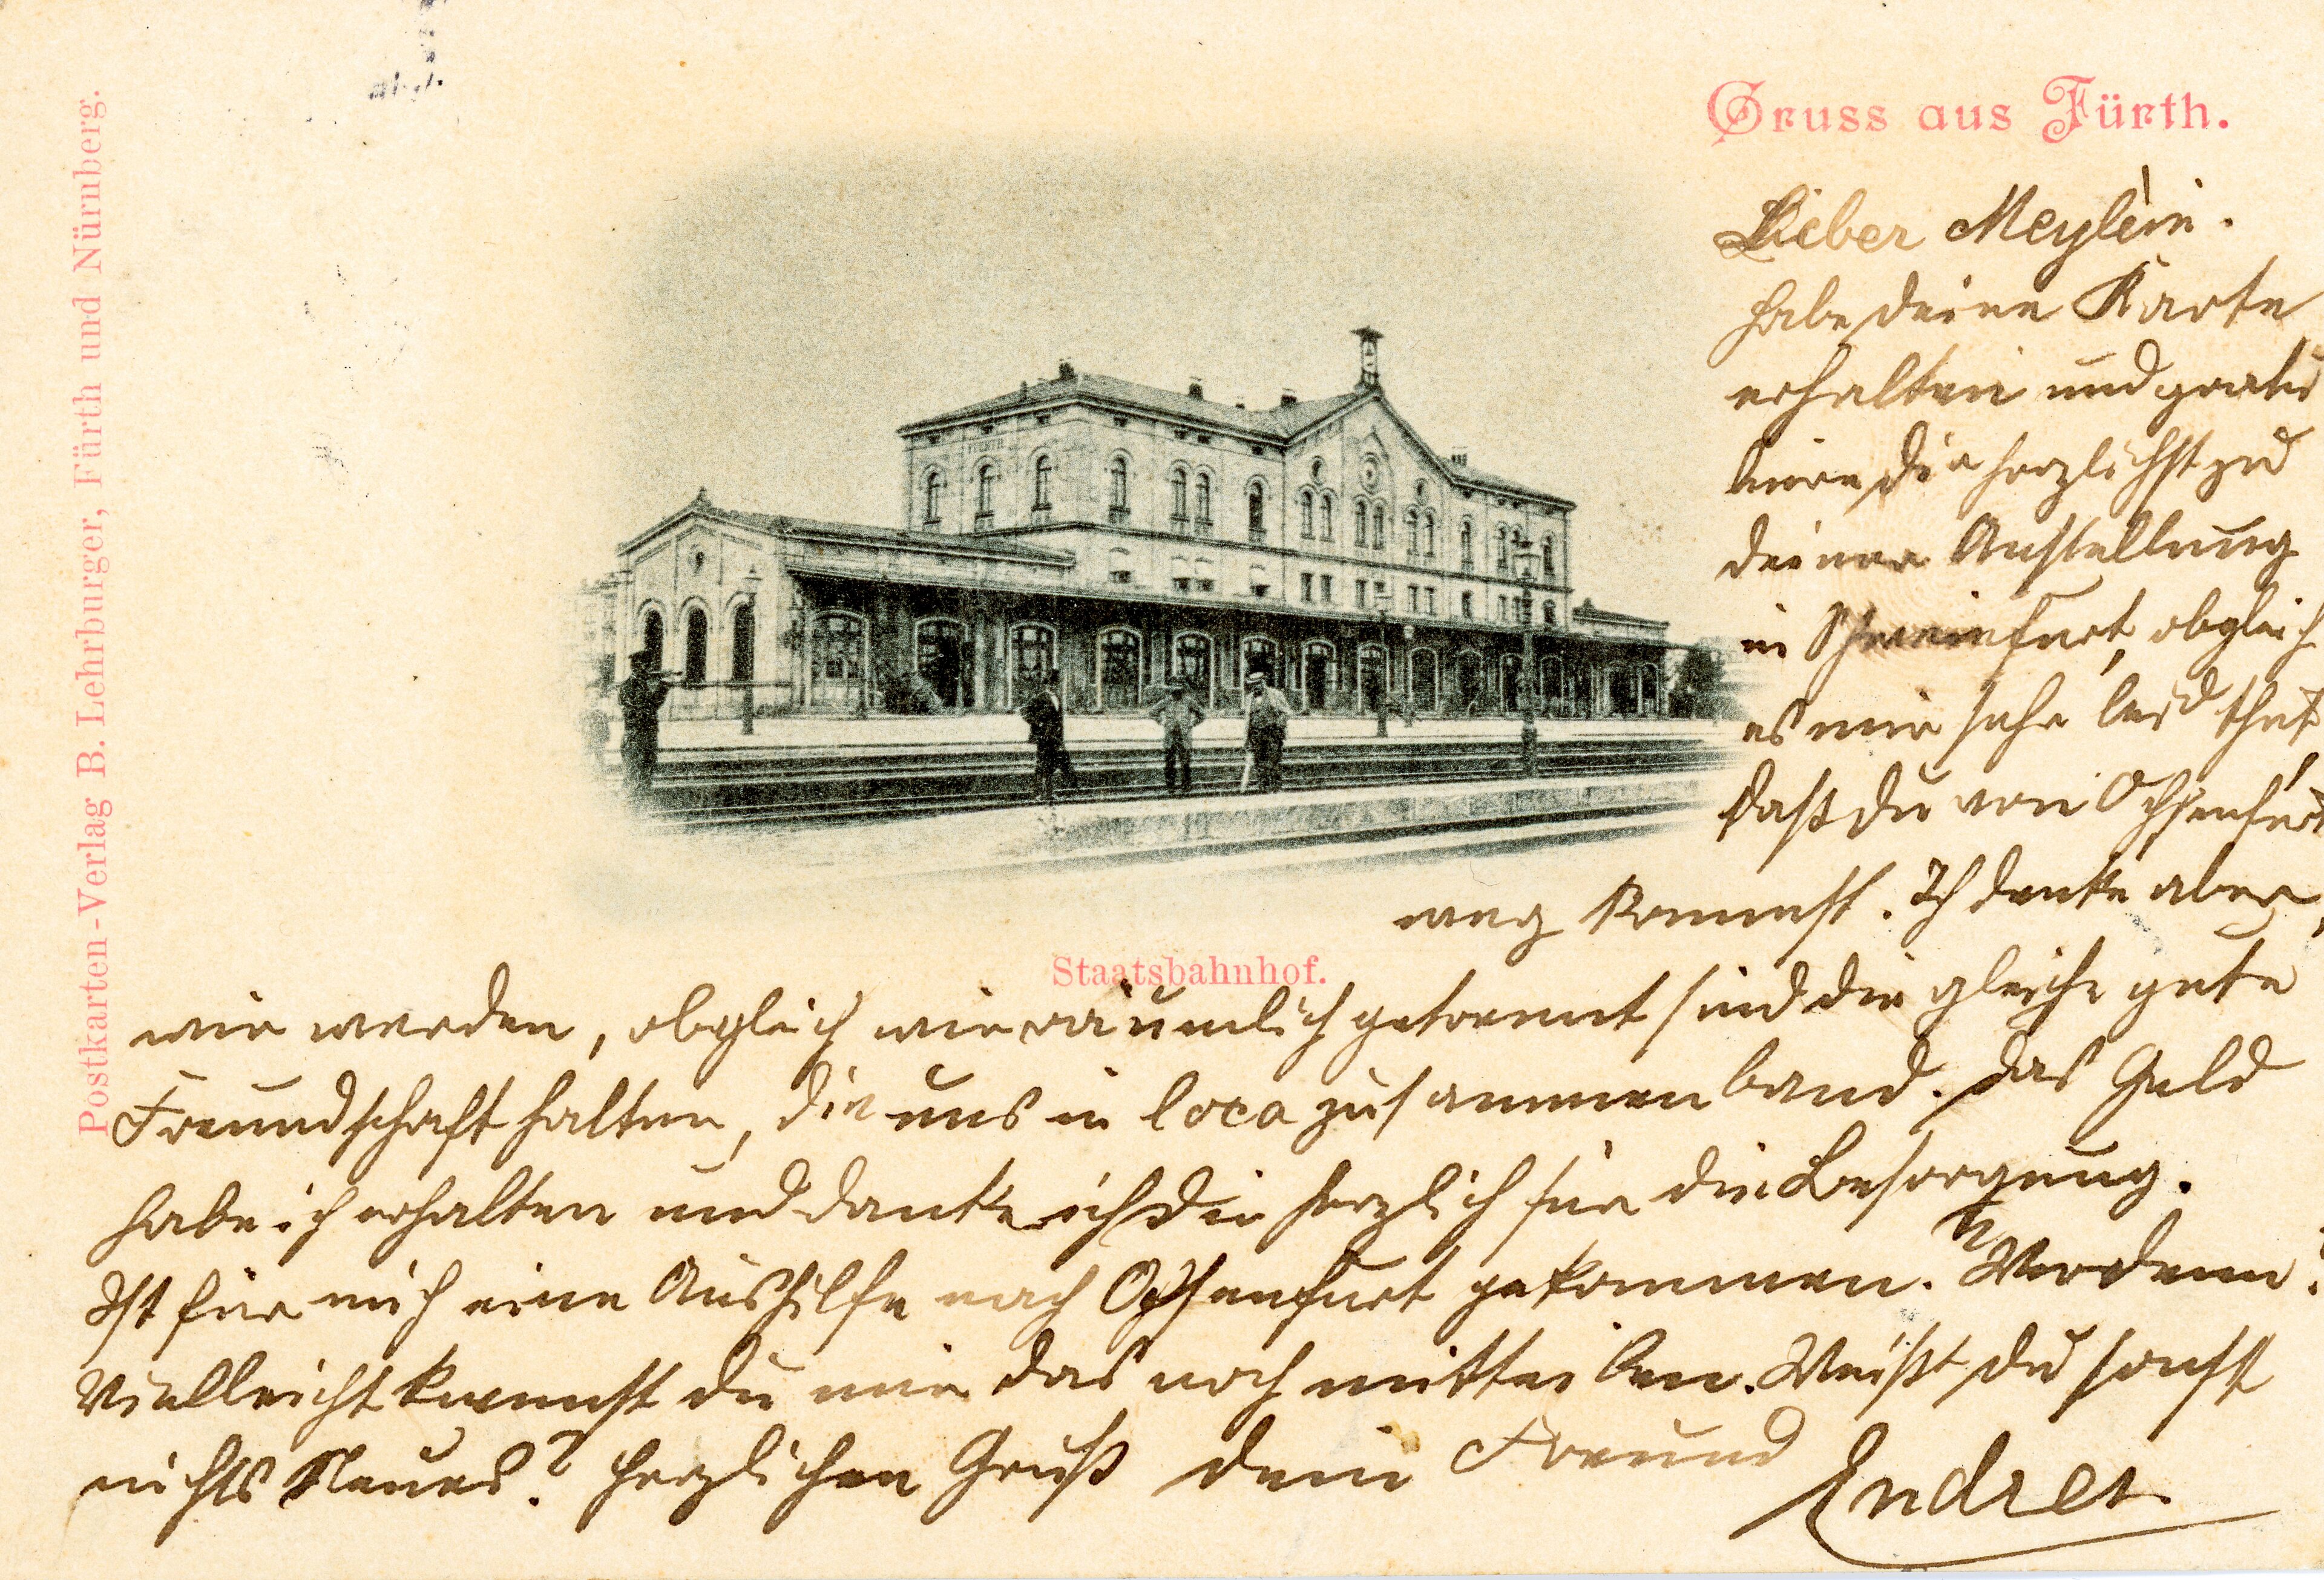 Gruss aus Fürth.
Postkarten-Verlag B. Lehrburger, Fürth und Nürnberg.
FÜRTH
Staatsbahnhof.
Lieber Meylein.
habe deine Karte
erhalten und gratu
liere dir herzlichst zu
deiner Anstellung
in Schweinfurt, obgleich
es mir sehr leid thut,
daß du von Ochsenfurt
weg kommst. Ich denke aber,
wir werden, obgleich wir räumlich getrennt sind die gleiche gute
Freundschaft halten, die uns in loco zusammen band. Das Geld
habe ich erhalten und danke ich dir herzlich für die Besorgung.
Ist für mich eine Aushilfe nach Ochsenfurt gekommen.
Vielleicht kannst du mir das noch mitteilen. Weißt du sonst
nichts Neues? Herzlichen Gruß dein Freund
Endres